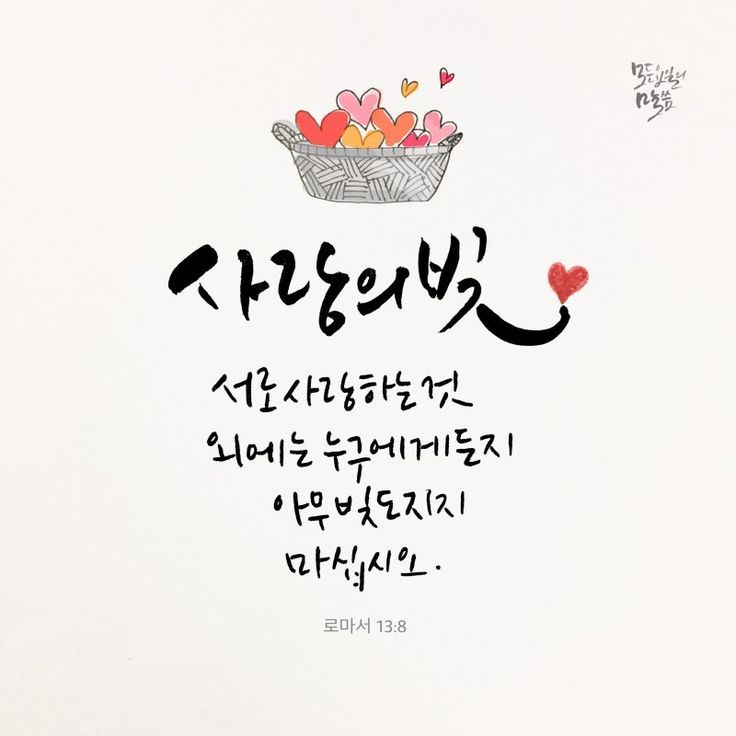 사랑의 빚
서로 사랑하는 것
외에는 누구에게든지
아무 빚도 지지
마십시오.
로마서 13:8